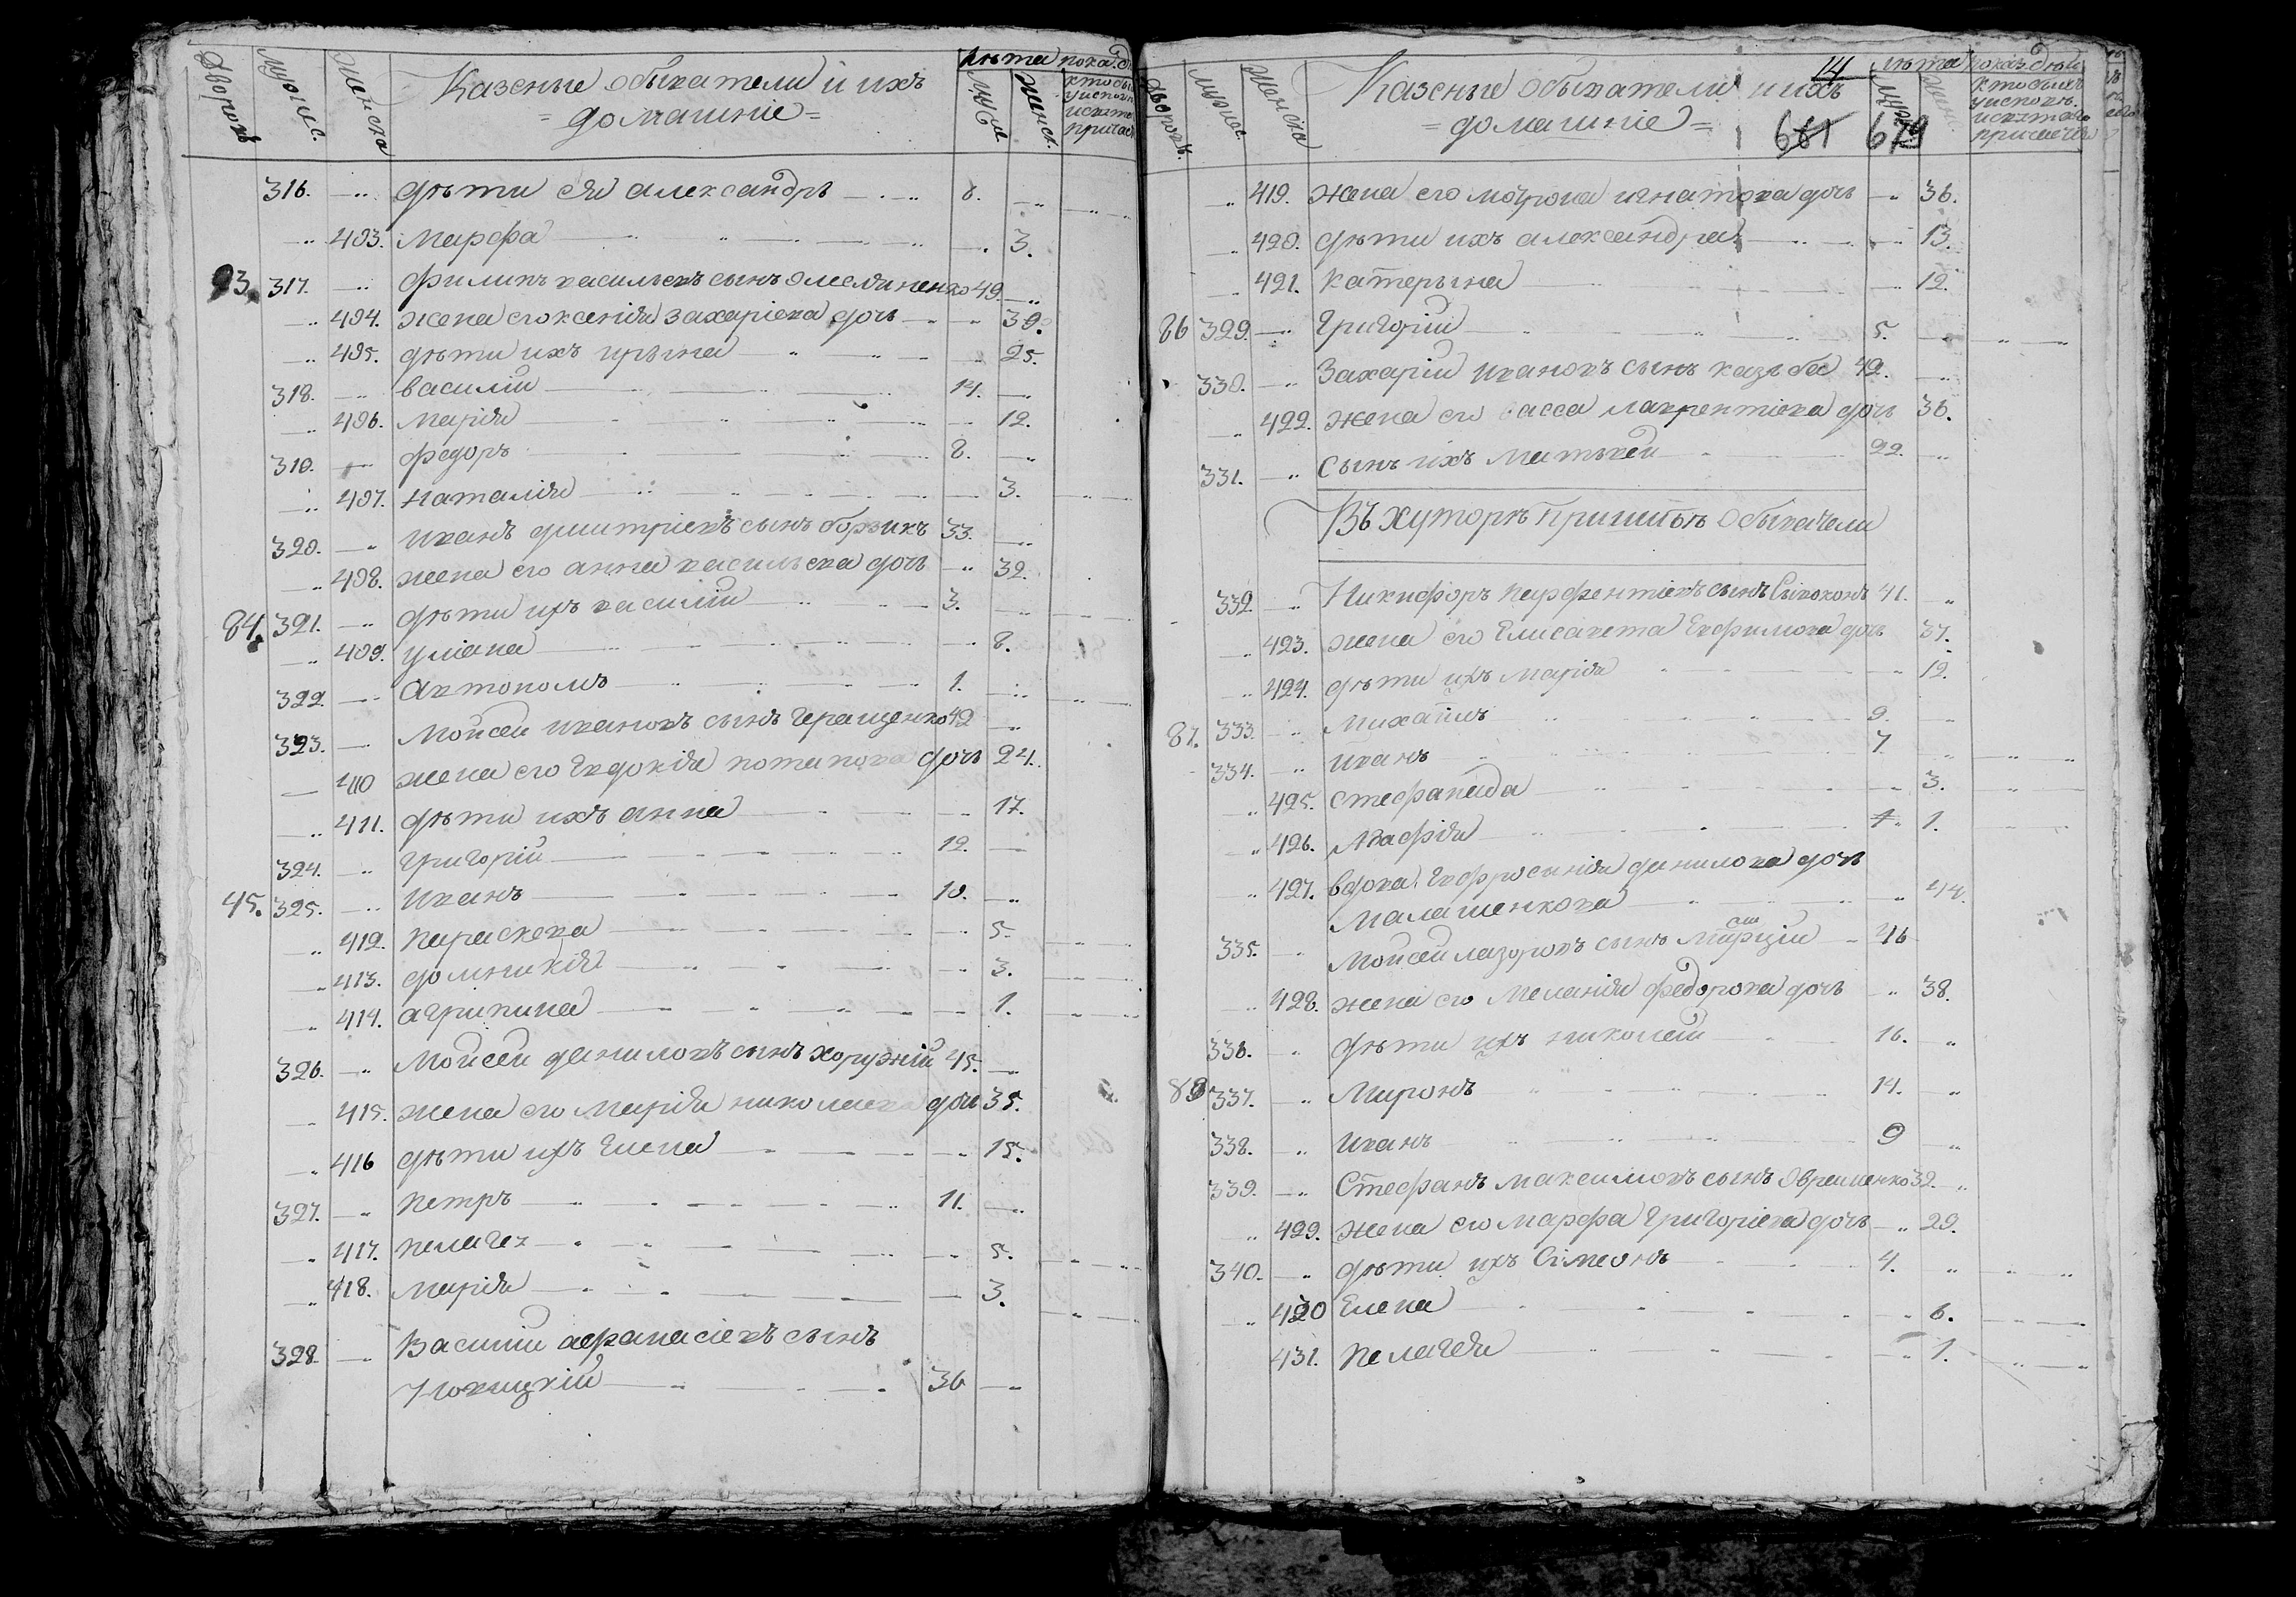 Дворовъ Мужес. Женска Казеные обыватели и ихъ домашніе Лѣта Мужс. Женск.
316. дѣти ея александръ 8.
403. Марфа 3.
83. 317. филипъ васильевъ сынъ Омельяненко 49.
404. жена его ксенія захаріева дочь 39.
405. дѣти ихъ ирына 25.
318. василій 14.
406. Марія 12.
319. федоръ 8.
407. Наталія 3.
320. иванъ дмитріевъ сынъ борзикъ 33.
408. жена его анна васильева дочь 32.
84. 321. дѣти ихъ василій 3.
409. уліана 8.
322. Автономъ 1.
323. Мойсей ивановъ сынъ Геращенко 42
410 жена его Евдокія потапова дочь 24.
411. дѣти ихъ анна 17.
324. григорій 12.
45. 325. Иванъ 10.
412. параскева 5.
413. домникія 3.
414. агрипина 1.
326. Мойсей даниловъ сынъ хоружій 45.
415. жена его Марія николаева дочь 35.
416 дѣти ихъ Елена 15.
327. петръ 11.
417. пелагея 5.
418. марія 3.
328. Василій афанасіевъ сынъ
36
Дворовъ. Мужес. Женска Казеные обыватели и ихъ 14 Лѣта
= домашніе = 681 679
419. жена его мотрона игнатова дочь 36.
420. дѣти ихъ александра 13.
421. катерына 12.
86 329. Григорій 5.
330. Захарій ивановъ сынъ 49.
422. жена его васса лаврентіева дочь 36.
331. Сынъ ихъ Матвей 22.
Въ хуторѣ Пришибѣ обыватели
332. Никифоръ парфентіевъ сынъ Сывоконъ 41.
423. жена его Елисавета Евфимова дочь 37.
424. дѣти ихъ марія 12.
87. 333. михаилъ 9.
334. иванъ 7.
425. стефанида 3.
426. Агафія 1. 1.
427. вдова Евфросинія данилова дочь
Малашенкова 44.
335. Мойсей лазоровъ сынъ 46
428. жена его Меланія федорова дочь 38.
336. дѣти ихъ николай 16.
88 337. Миронъ 14.
338. Иванъ 9
339. Стефанъ максимовъ сынъ Овременко 32.
429. жена его марфа григоріева дочь 29.
340. дѣти ихъ Сімеонъ 4.
430 Елена 6.
431. пелагея 1.